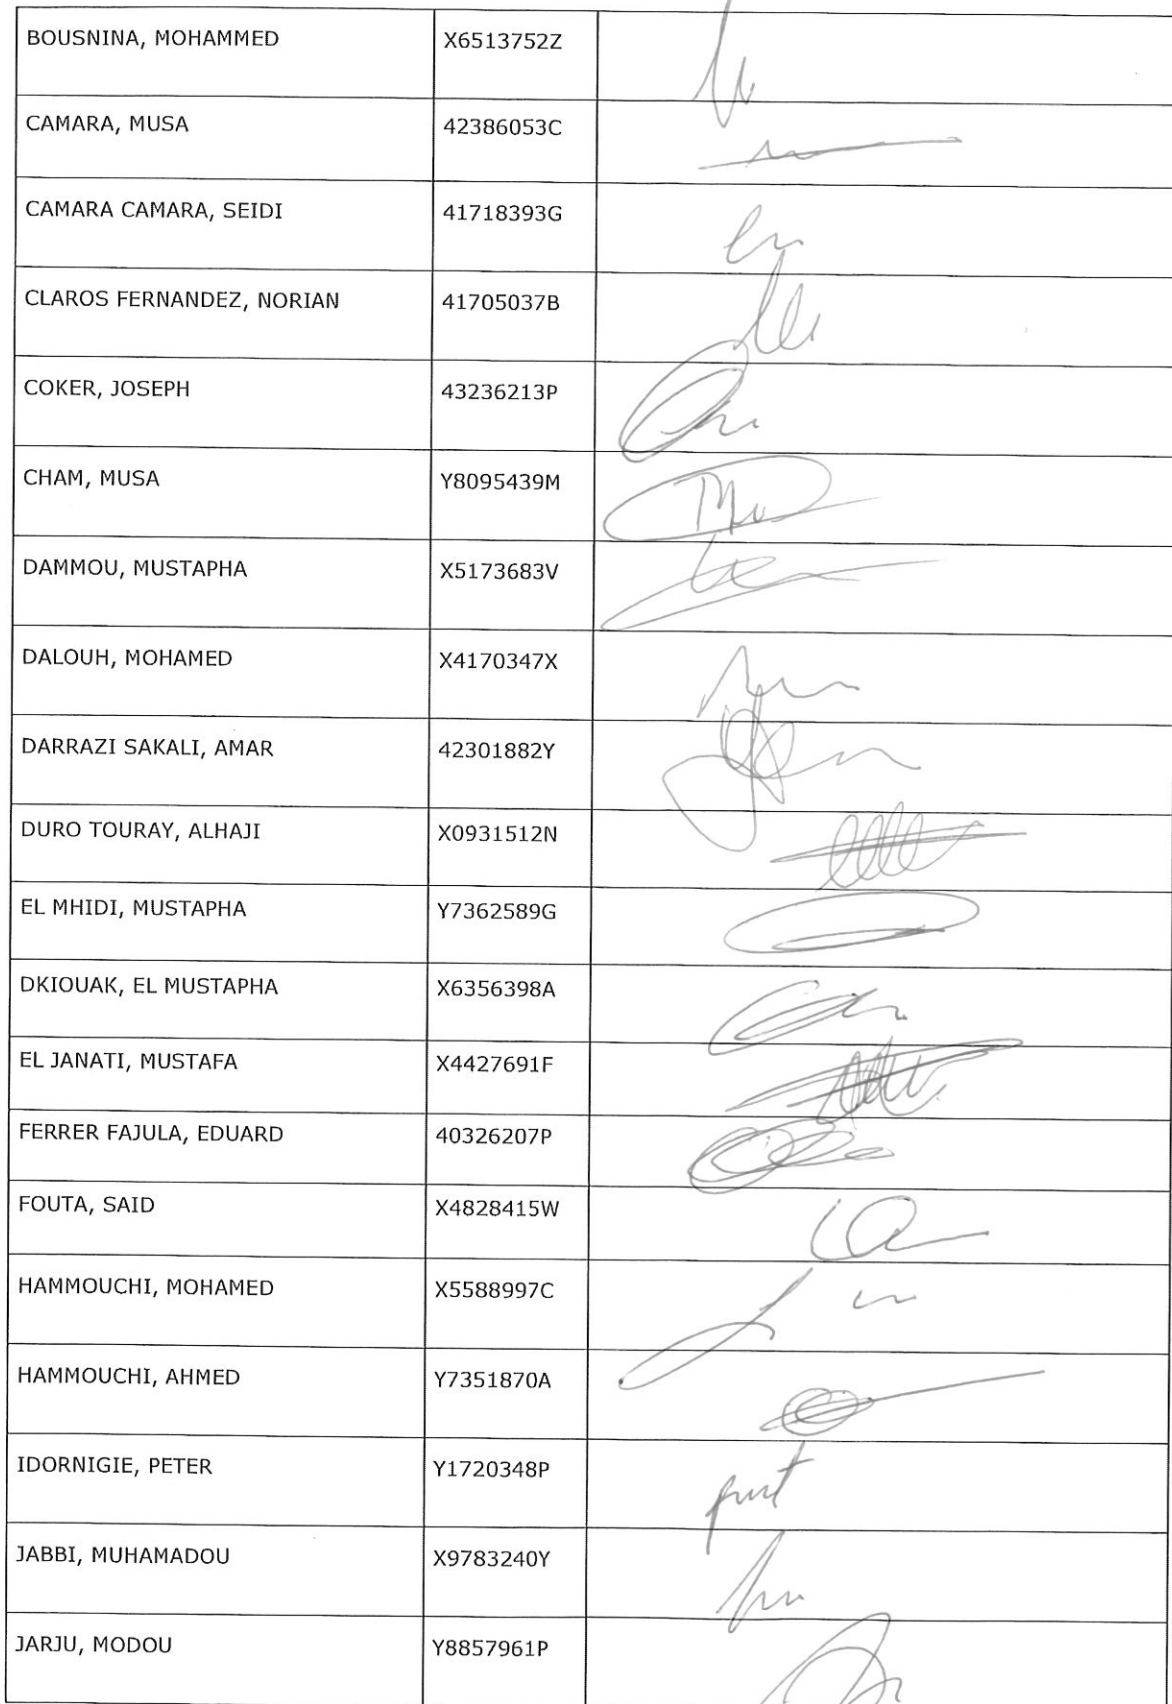 BOUSNINA, MOHAMMED X6513752Z
CAMARA, MUSA 42386053C
CAMARA CAMARA, SEIDI 41718393G
CLAROS FERNANDEZ, NORIAN 41705037B
COKER, JOSEPH 43236213P
CHAM, MUSA Y8095439M
DAMMOU, MUSTAPHA X5173683V
DALOUH, MOHAMED X4170347X
DARRAZI SAKALI, AMAR 42301882Y
DURO TOURAY, ALHAJI X0931512N
EL MHIDI, MUSTAPHA Y7362589G
DKIOUAK, EL MUSTAPHA X6356398A
EL JANATI, MUSTAFA X4427691F
FERRER FAJULA, EDUARD 40326207P
FOUTA, SAID X4828415W
HAMMOUCHI, MOHAMED X5588997C
HAMMOUCHI, AHMED Y7351870A
IDORNIGIE, PETER Y1720348P
JABBI, MUHAMADOU X9783240Y
JARJU, MODOU Y8857961P